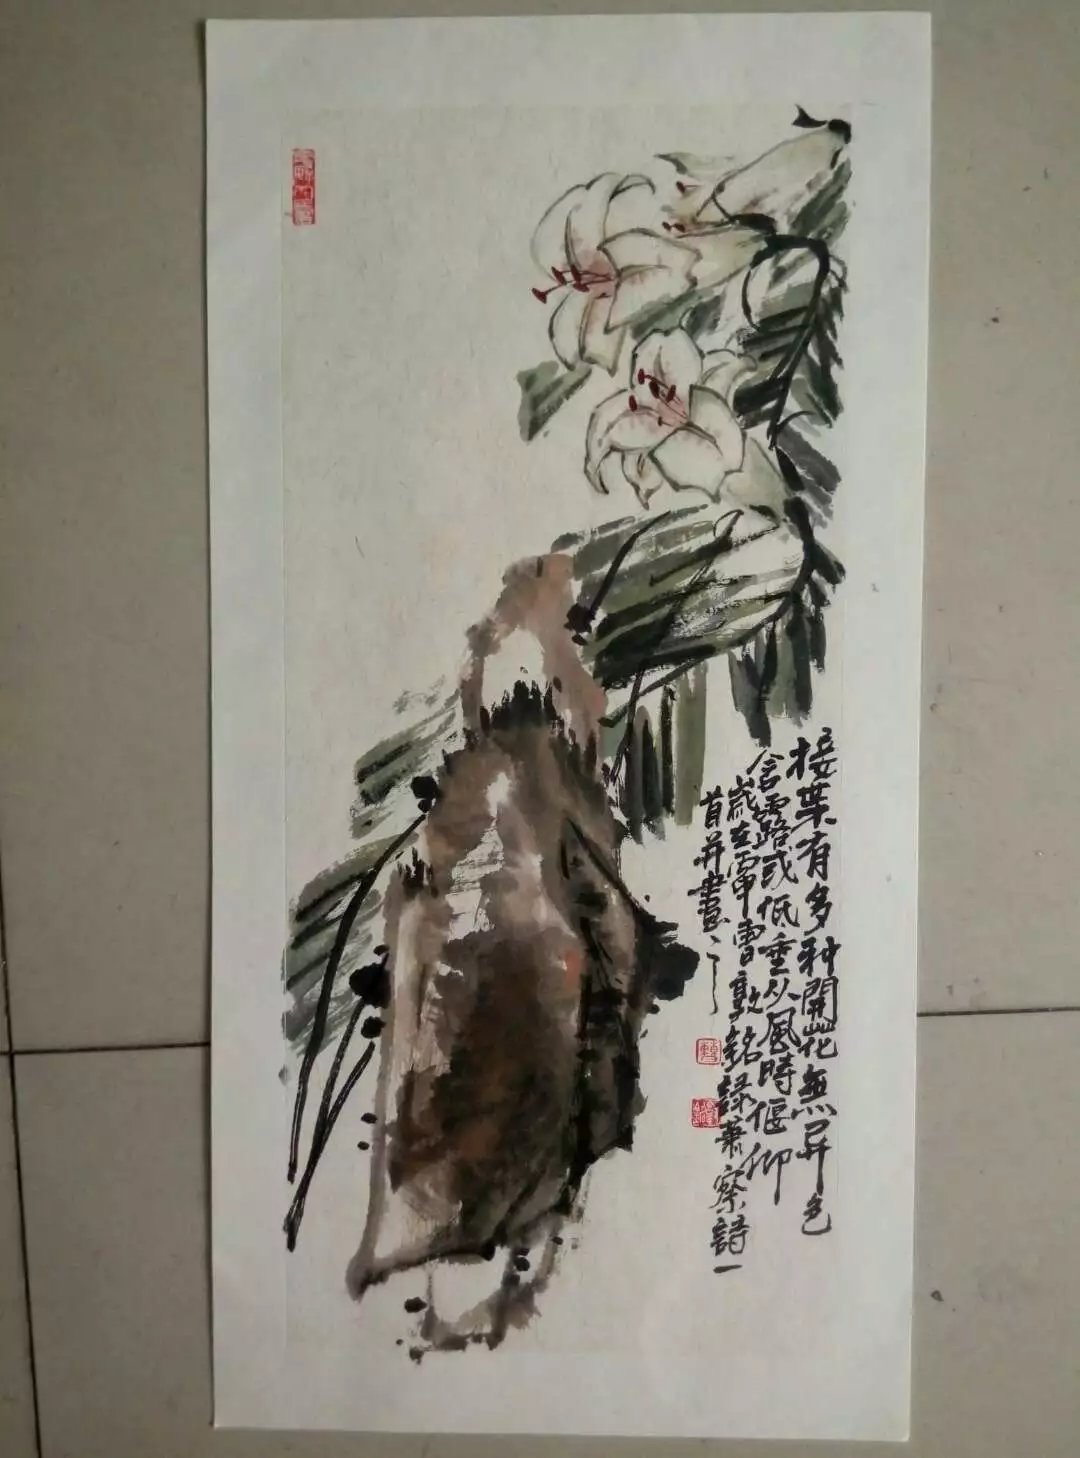 接葉有多种開花無异色
含露或低垂从風時偃仰
歲在曹敦銘錄蕭察詩一
首并畫之